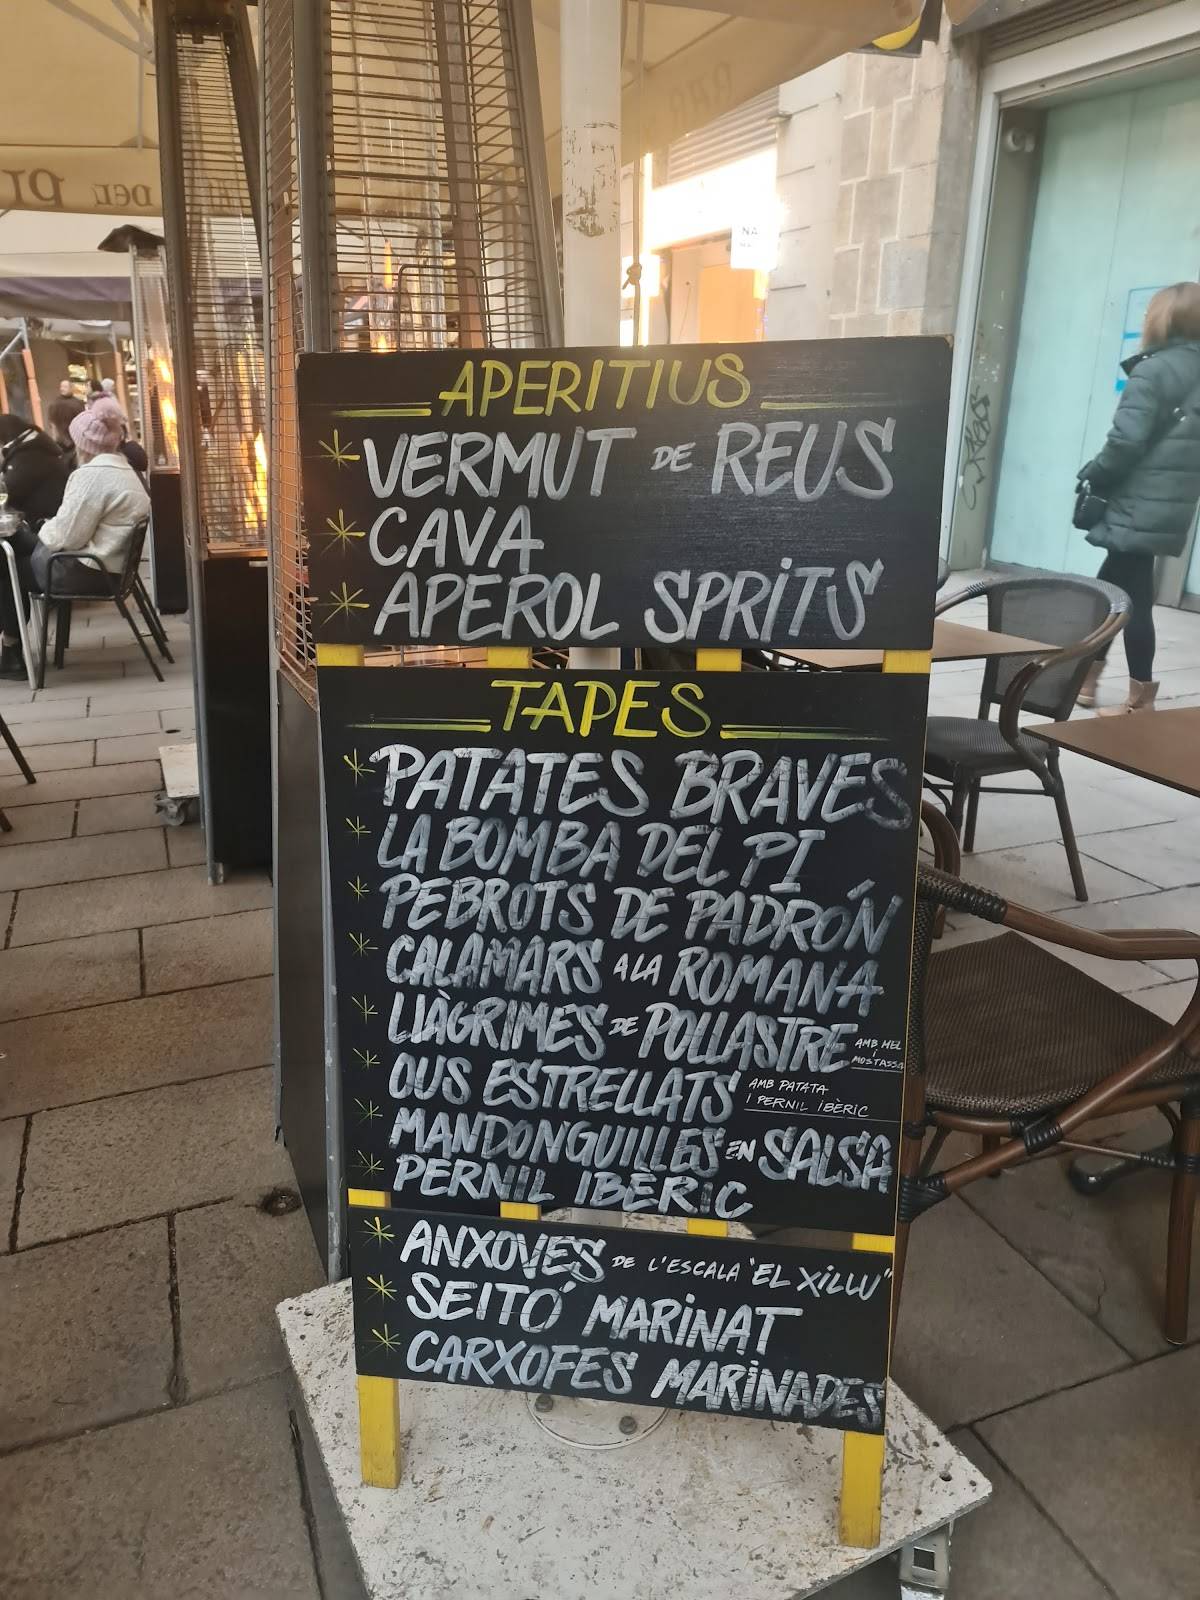 APERITIUS
* VERMUT DE REUS
* CAVA
* APEROL SPRITS
TAPES
* PATATES BRAVES
* LA BOMBA DEL PI
* PEBROTS DE PADRÓN
* CALAMARS A LA ROMANA
* LLÀGRIMES DE POLLASTRE AMB MEL
I
MOSTASSA
* OUS ESTRELLATS AMB PATATA
I PERNIL IBÈRIC
* MANDONGUILLES EN SALSA
* PERNIL IBÈRIC
* ANXOVES DE L'ESCALA "EL XILLU"
* SEITÓ MARINAT
* CARXOFES MARINADES
DEL PI
BAR
NA